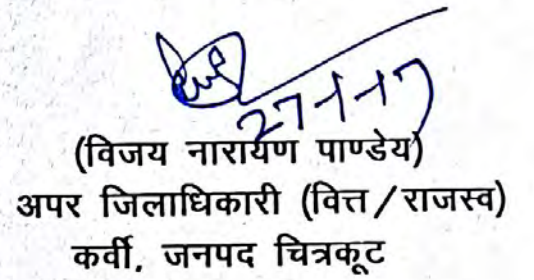 27-1-17
(विजय नारायण पाण्डेय)
अपर जिलाधिकारी (वित्त/राजस्व)
कर्वी, जनपद चित्रकूट